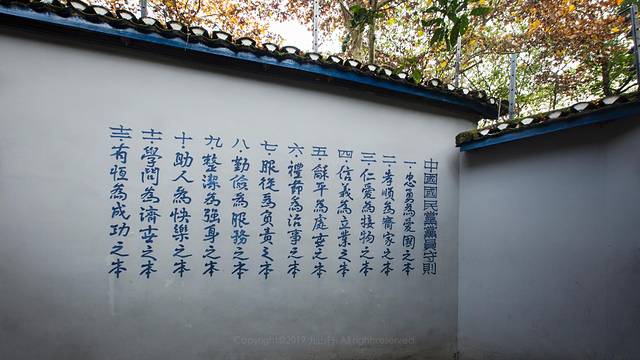 中國國民黨黨員守則
一·忠勇為愛國之本
二·孝順為齊家之本
三·仁愛為接物之本
四·信義為立業之本
五·龢平為處世之本
六·禮節為治事之本
七·服從為負責之本
八·勤儉為服務之本
九·整潔為強身之本
十·助人為快樂之本
十一·學問為濟世之本
十二·有恆為成功之本
Copyright©2019 All right reserved.